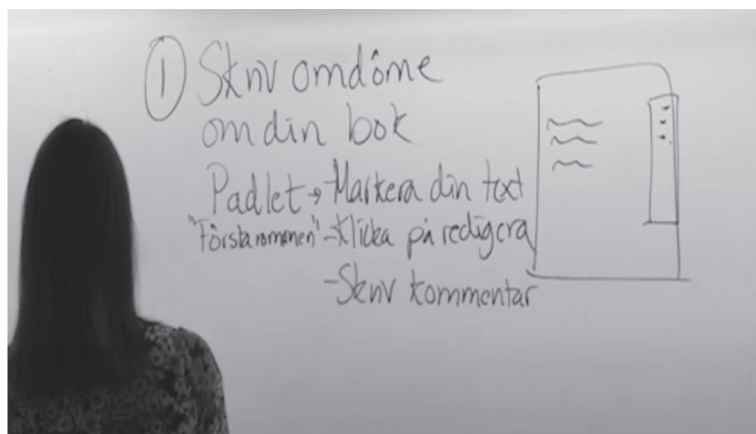 ① Skriv omdöme
om din bok
Padlet → Markera din text
"Första rommen" - Klicka på redigera
- Skriv kommentar